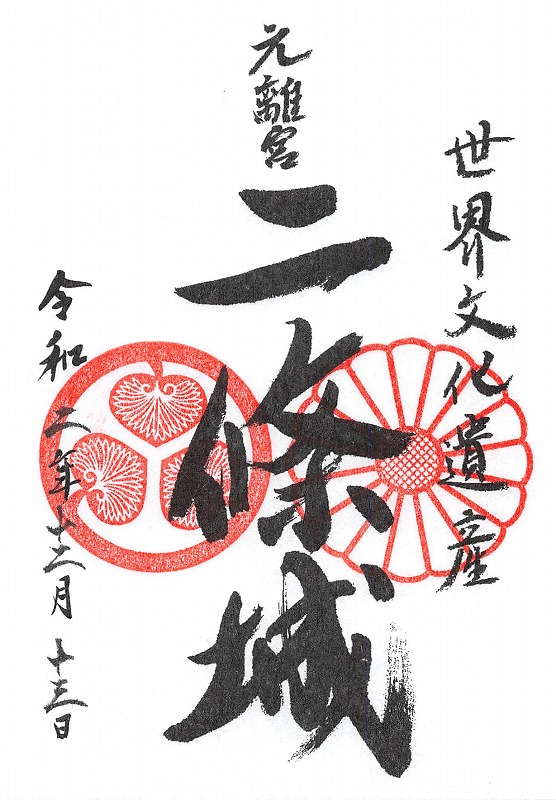 世界文化遺産
元離宮
二條城
令和二年十二月十三日